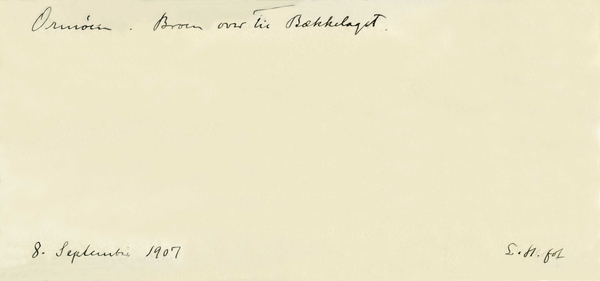 Ormøen. Broen over til Bækkelaget.
8. September 1907
fot